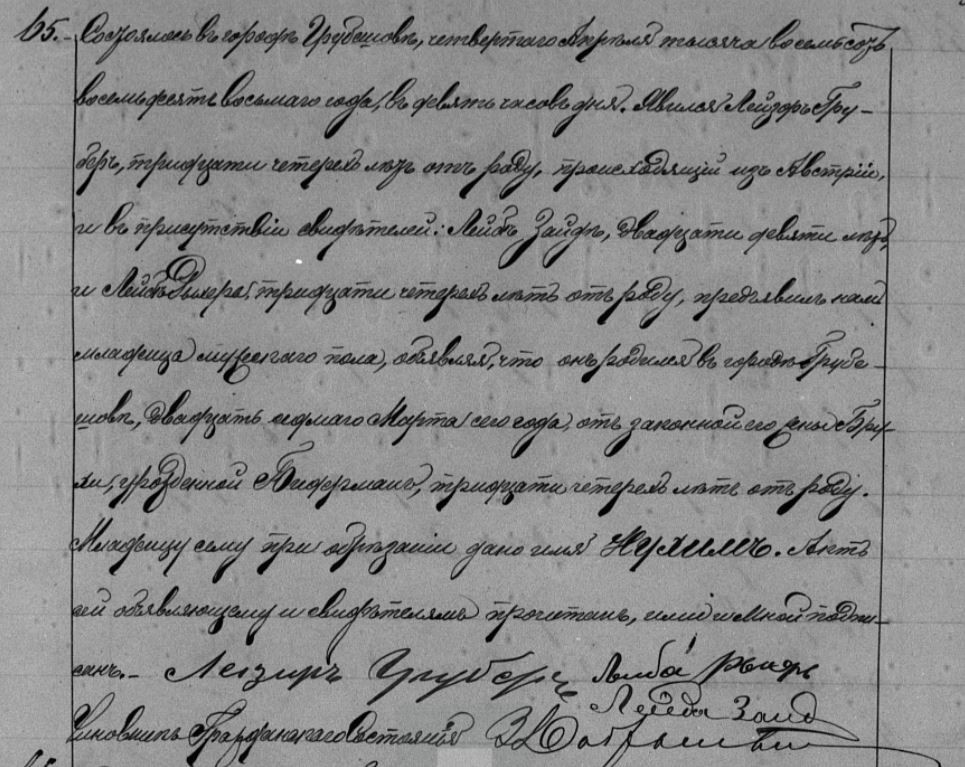 65. Состоялось въ городѣ Грубешовѣ, четвертаго Апрѣля тысяча восемьсотъ
восемьдесятъ восьмаго года, въ девять часовъ дня. Явился Лейзоръ Гру-
беръ, тридцати четырехъ лѣтъ отъ роду, происходящій изъ Австріи,
и въ присутствіи свидѣтелей: Лейбы Зайдъ, двадцати девяти лѣтъ,
и Лейбы, тридцати четырехъ лѣтъ отъ роду, предъявилъ намъ
младенца мужескаго пола, объявляя, что онъ родился въ городѣ Грубе-
шовѣ, двадцать седмаго Марта сего года, отъ законной его жены Бру-
хи, урожденной Бидерманъ, тридцати четырехъ лѣтъ отъ роду.
Младенцу сему при обрѣзаніи дано имя Нухимъ. Актъ
сей объявляющему и свидѣтелямъ прочитанъ, ими и мной подпи-
санъ. - Лейзиръ Грубер Лейба
Лейба Заид
Чиновникъ Гражданскаго Состоянія